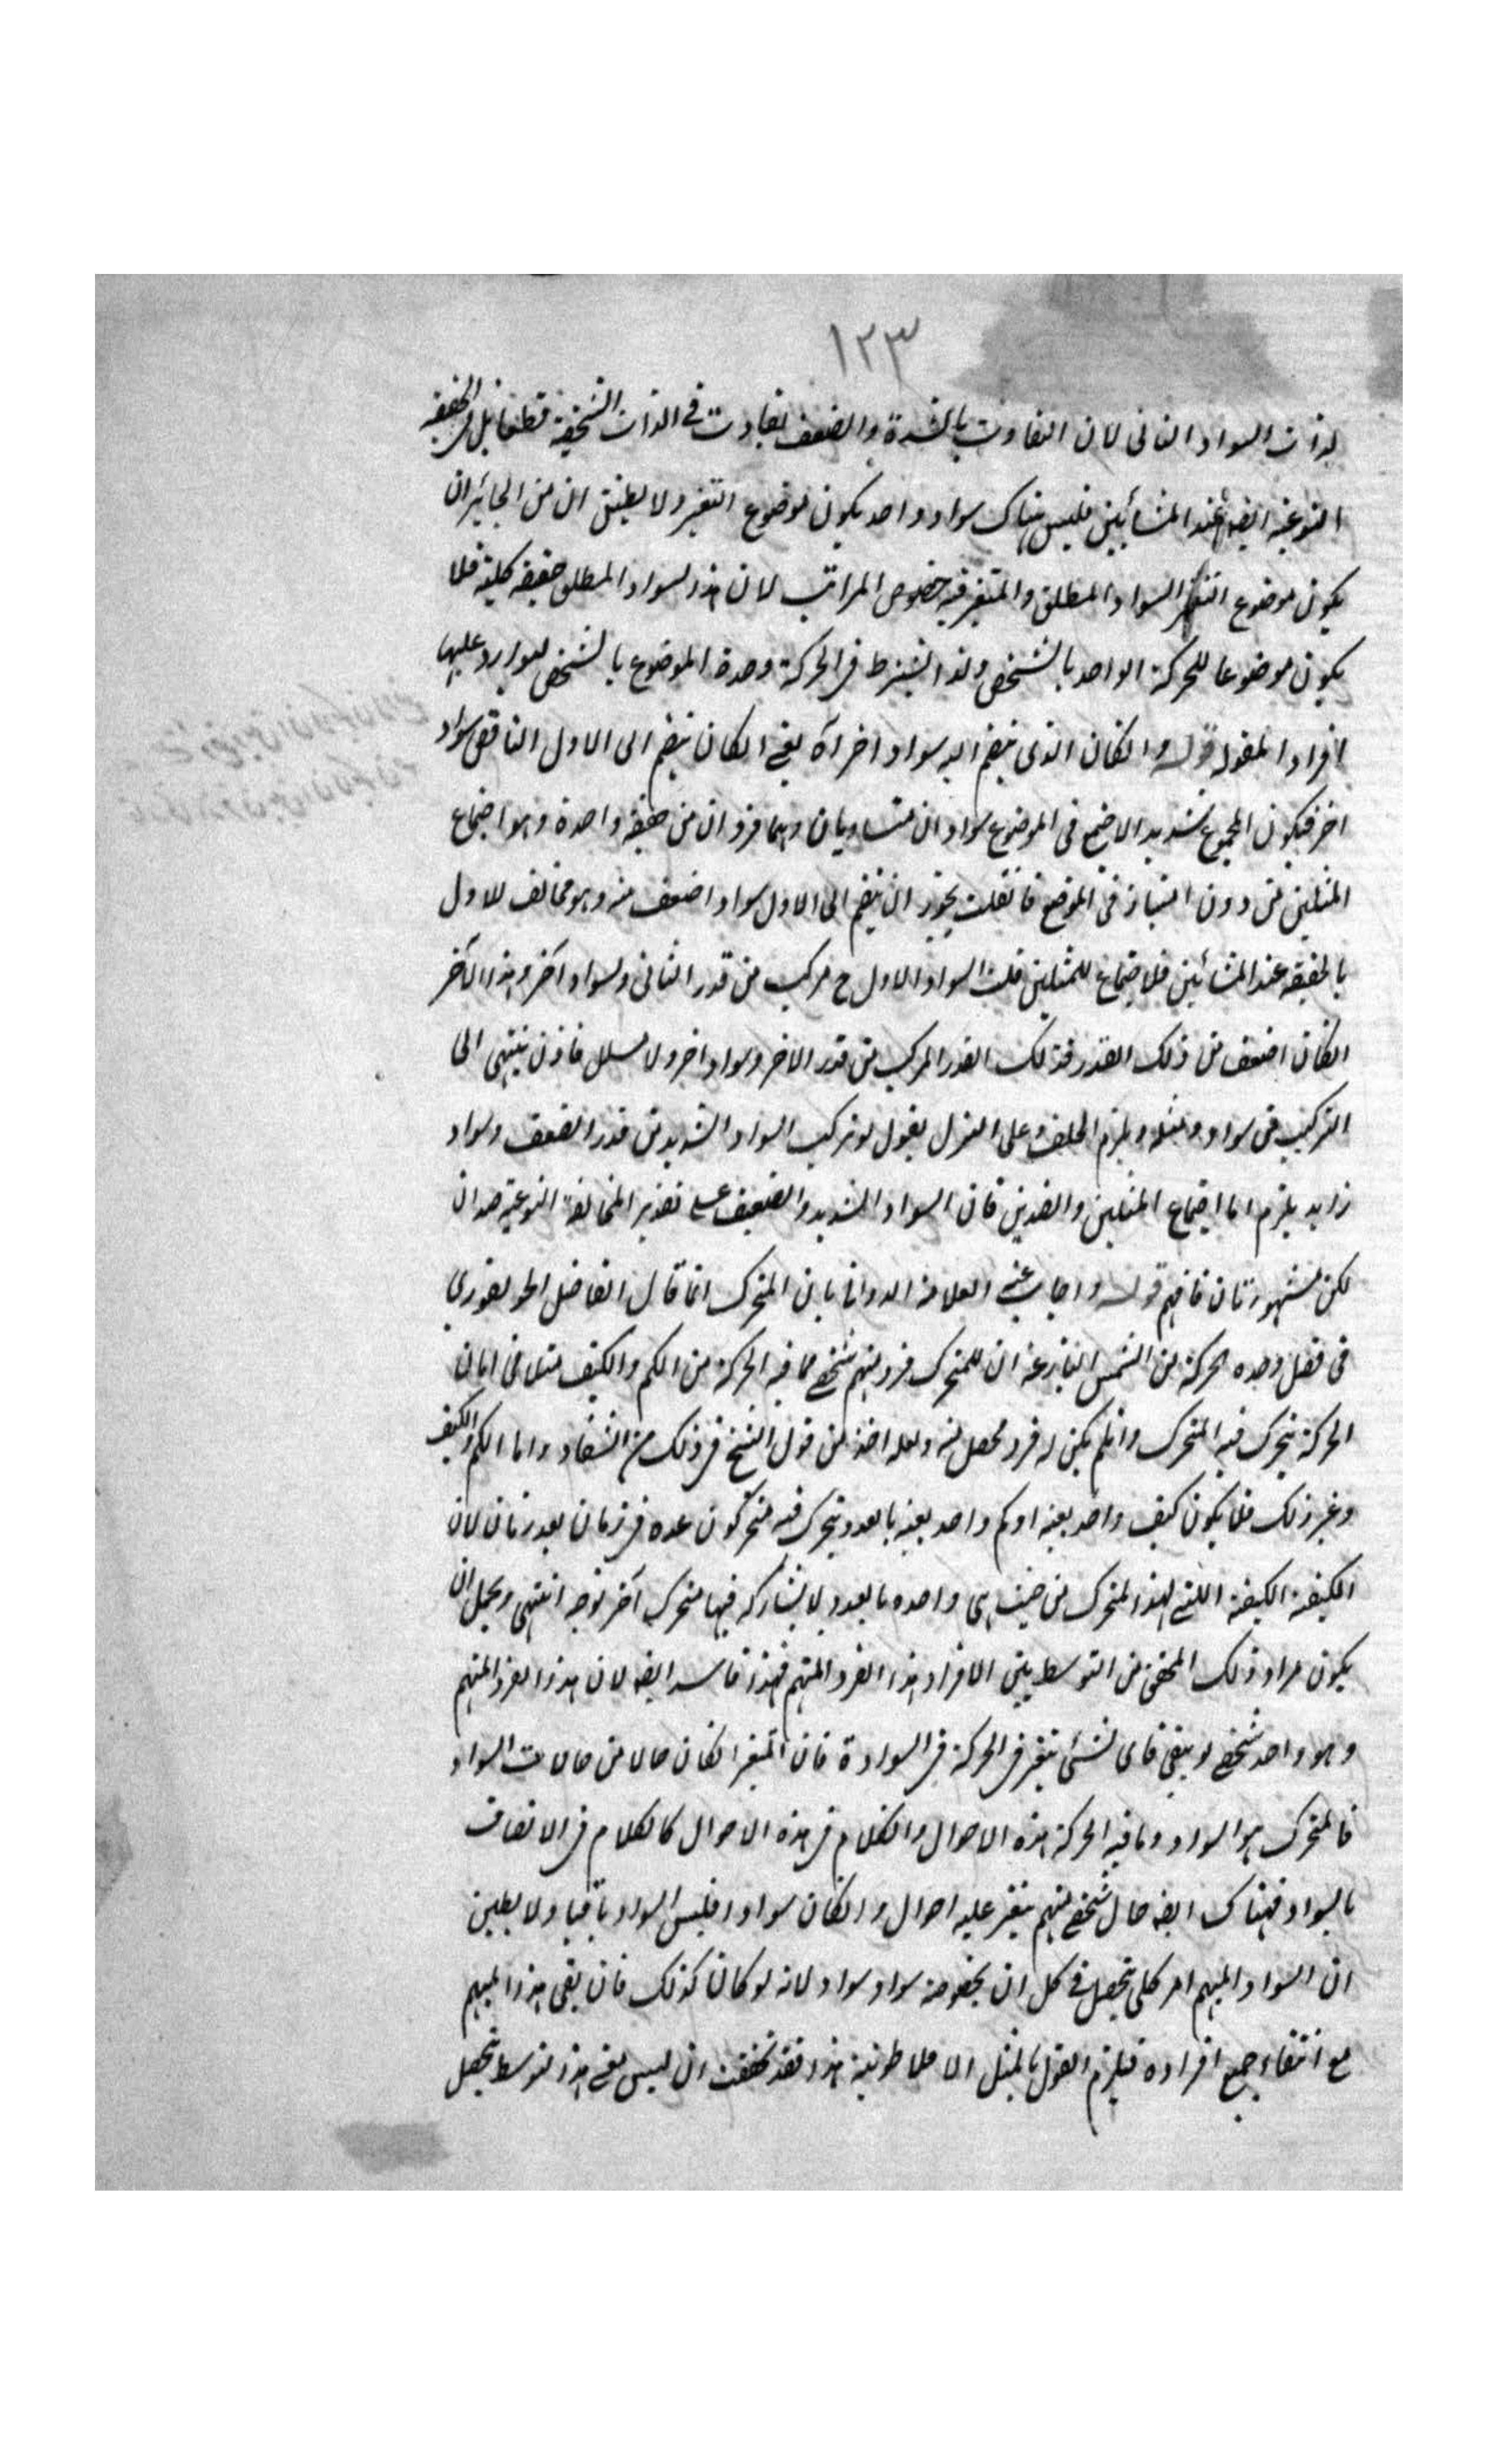 ١٢٣
لذات السواد الثانى لان التفاوت بالشدة والضعف تفاوت فى الذات الشخصية قطعا بل الحقيقة
النوعية ايضا عند المشائيين فليس هناك سواد واحد يكون موضوع التغير ولا يظنن ان من الجائز ان
يكون موضوع التغير السواد المطلق والمتغير فيه خصوص المراتب لان هذا السواد المطلق حقيقة كلية فلا
يكون موضوعا للحركة الواحد بالشخص ولذا اشترط فى الحركة وحدة الموضوع بالشخص ليوارد عليها
افراد المقولة قوله وانكان الذى ينضم اليه سواد اخر آه يعنى انكان ينضم الى الاول الناقص سواد
اخر فيكون المجموع شديد الاجتمع فى الموضوع سوادان متساويان وهما فردان من حقيقة واحدة وهو اجتماع
المثلين من دون امتياز فى الموضع فانقلت يجوز ان ينضم الى الاول سواد اضعف منه وهو مخالف للاول
بالحقيقة عند المشائين فلا اجتماع للمثلين قلت السواد الاول ح مركب من قدر الثانى وسواد آخر وهذا الآخر
انكان اضعف من ذلك القدر فذلك القدر المركب من قدر الاخر وسواد اخر ولا تسلسل فاذن ينتهى الى
التركيب من سواد ومثله ويلزم الخلف وعلى التنزل يقول لو تركب السواد الشديد من قدر الضعف وسواد
زايد يلزم اما اجتماع المثلين والضدين فان السواد الشديد والضعيف على تقدير المخالفة النوعية ضدان
لكن مشهورتان فافهم قوله واجاب عنه العلامة الدوانى بان المتحرك انما قال الفاضل الجونفورى
فى فصل وحدة الحركة من الشمس البازغة ان للمتحرك فرد مبهم شخصى مما فيه الحركة من الكم والكيف مثلا فى ابان
الحركة يتحرك فيه المتحرك وانلم يكن له فرد محصل منه ولعله اخذ من قول الشيخ فى ذلك من الشفاء واما الكم والكيف
وغير ذلك فلا يكون كيف واحد بعينه اوكم واحد بعينه بالعدد يتحرك فيه متحركون عدة فى زمان بعد زمان لان
الكيفية الكيفية اللتى لهذا المتحرك من حيث هى واحدة بالعدد لا يشاركه فيها متحرك آخر لوجه انتهى ويحمل ان
يكون مراد ذلك المحشى من التوسط بين الافراد هذا الفرد المبهم فهذا فاسد ايضا لان هذا الفرد المبهم
وهو واحد شخصى لو بقى فاى شئ يتغير فى الحركة فى السوادة فان المتغير انكان حالا من حالات السواد
فالمتحرك هو السواد وما فيه الحركة هذه الاحوال والكلام فى هذه الاحوال كالكلام فى الاتصاف
بالسواد فهناك ايضا حال شخصى مبهم يتغير عليه احوال وانكان سوادا فليس السواد باقيا ولا يظنن
ان السواد المبهم امر كلى يتحصل فى كل ان بخصوصة سواد سواد لانه لو كان كذلك فان بقى هذا المبهم
مع انتفاء جميع افراده فيلزم القول بالمثل الافلاطونية هذا فقد تحققت ان ليس معنى هذا التوسط يتحصل